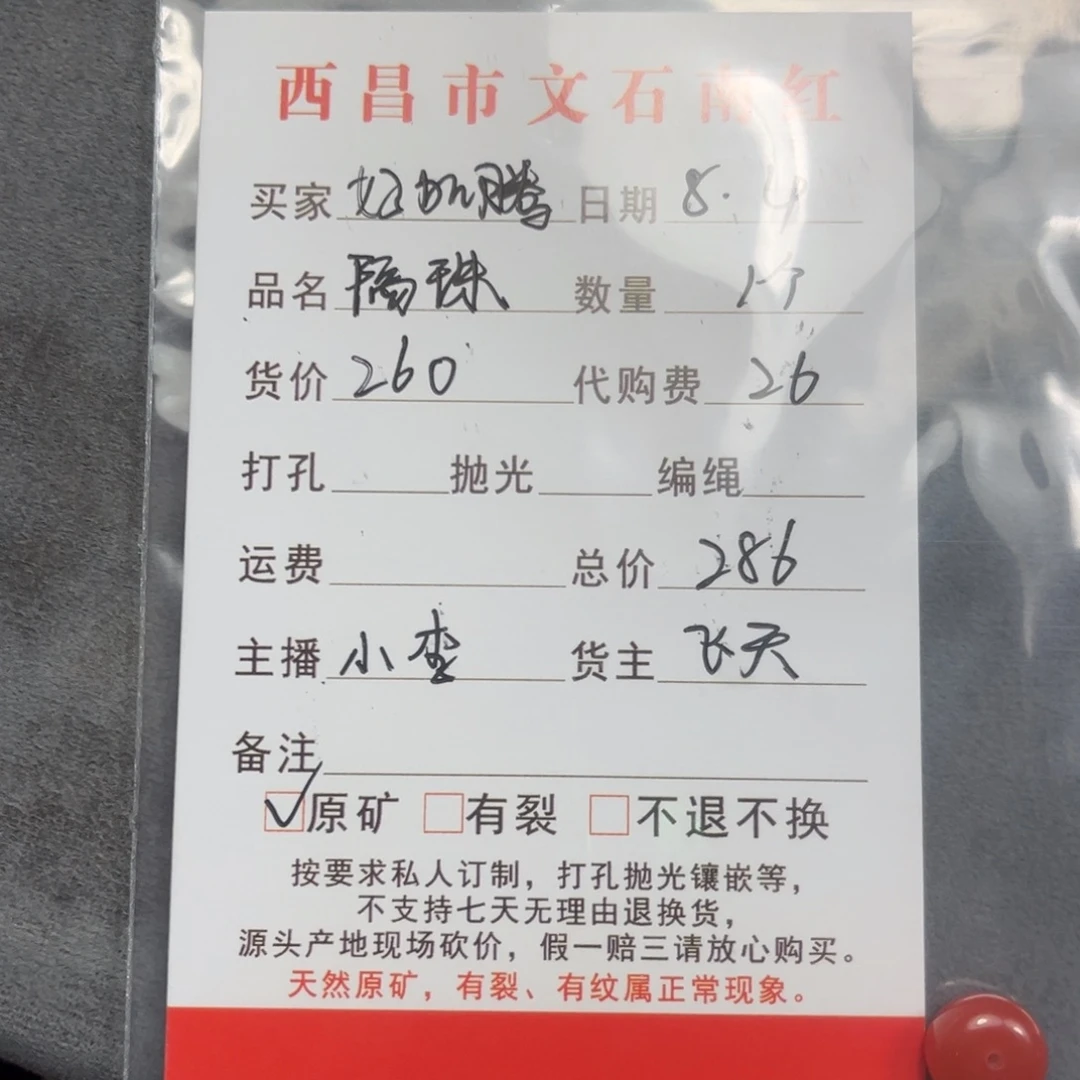 西昌市文石南红
买家 好加腾 日期 8.4
品名 隔珠 数量
货价 260 代购费 26
打孔 抛光 编绳
运费 总价 286
主播 小李 货主 飞天
备注
原矿 有裂 不退不换
按要求私人订制，打孔抛光镶嵌等，
不支持七天无理由退换货，
源头产地现场砍价，假一赔三请放心购买。
天然原矿，有裂、有纹属正常现象。